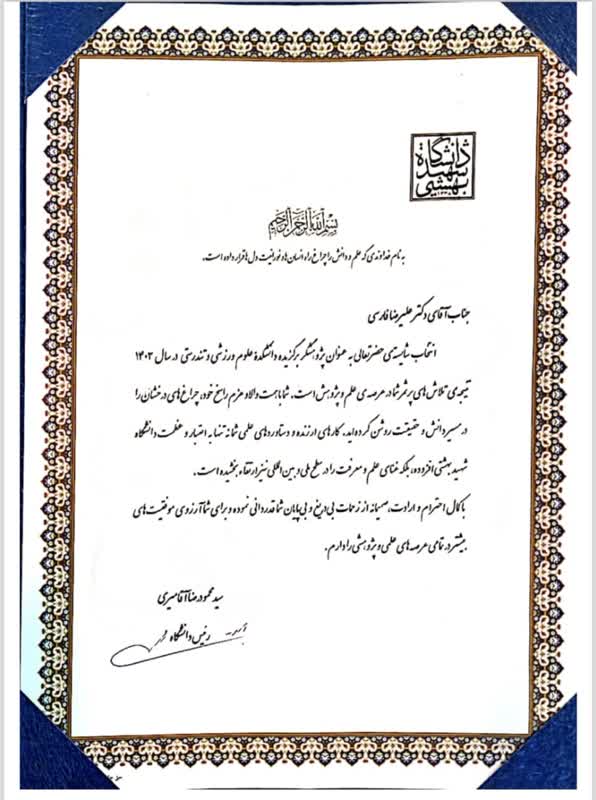 دانشگاه
شهید
بهشتی
بسم الله الرحمن الرحیم
به نام خداوندی که علم و دانش را چراغ راه انسان ها و نور بخش دل ها قرار داده است.
جناب آقای دکتر علیرضا فارسی
انتخاب شایسته‌ی حضرتعالی به عنوان پژوهشگر برگزیده دانشکدۀ علوم ورزشی و تندرستی در سال ۱۴۰۳
نتیجه‌ی تلاش های پرثمر شما در عرصه‌ی علم و پژوهش است. شما با همت والا و عزم راسخ خود، چراغ های درخشان را
در مسیر دانش و حقیقت روشن کرده اید. کارهای ارزنده و دستاوردهای علمی شما نه تنها به اعتبار و عظمت دانشگاه
شهید بهشتی افزوده، بلکه غنای علم و معرفت را در سطح ملی و بین المللی نیز ارتقاء بخشیده است.
با کمال احترام و ارادت، صمیمانه از زحمات بی دریغ و بی پایان شما قدردانی نموده و برای شما آرزوی موفقیت های
بیشتر در تمامی عرصه های علمی و پژوهشی را دارم.
سید محمودرضا آقامیری
رئیس دانشگاه